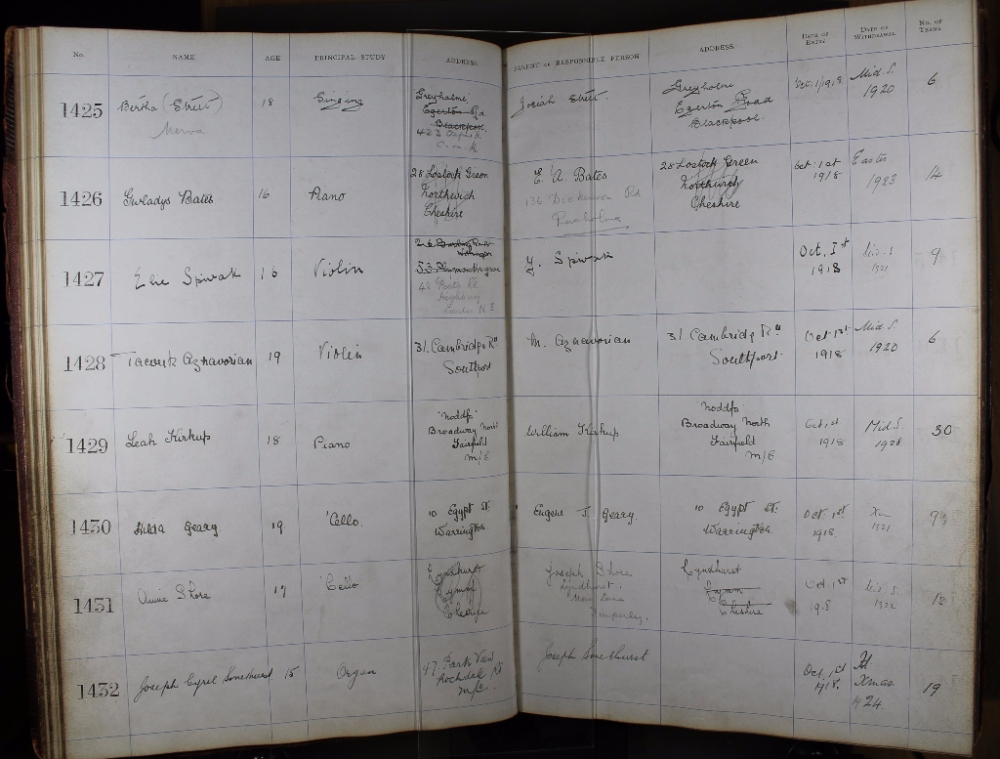 No.
NAME
AGE
PRINCIPAL STUDY
ADDRESS
PARENT or RESPONSIBLE PERSON
ADDRESS
DATE OF ENTRY
DATE OF WITHDRAWAL
NO. OF TERMS
1425
Bertha (Street)
18
Singing
Greyholme
Egerton Rd
Blackpool.
423
Josiah Street.
Greyholme
Egerton Road
Blackpool.
Oct. 1/1918
Mid. S.
1920
6
1426
Gwladys Bates
16
Piano
28 Lostock Green
Northwich
Cheshire
E. A. Bates
136 Dickenson Rd
Rusholme
28 Lostock Green
Northwich
Cheshire
Oct. 1st
1918
Easter
1923
14
1427
Elie Spivak
16
Violin
Highbury
London N 5
Y. Spivak
Oct. 1st
1918
Mid. S
1921
9
1428
Tacouk Aznavorian
19
Violin
31. Cambridge Rd
Southport
M. Aznavorian
31 Cambridge Rd
Southport.
Oct. 1st
1918
Mid. S.
1920
6
1429
Leah Kirkup
18
Piano
Broadway North
Fairfield
M/C
William Kirkup
Broadway North
Fairfield
M/C
Oct. 1st
1918
Mid. S.
1928
30
1430
Hilda Geary
19
'Cello.
10 Egypt St.
Warrington
Eugene J. Geary.
10 Egypt St.
Warrington
Oct. 1st
1918.
1921
9
1431
Annie Shore
17
'Cello
Lyndhurst
Lymm
Cheshire
Joseph Shore
Lyndhurst
Moss Lane
Timperley.
Lyndhurst
Lymm
Cheshire
Oct. 1st
1918
Mid. S.
1922
12
1432
Joseph Cyril Smethurst
15
Organ
47. Park View
Rochdale Rd
M/C.
Joseph Smethurst
Oct. 1st
1918.
Xmas
1924.
19